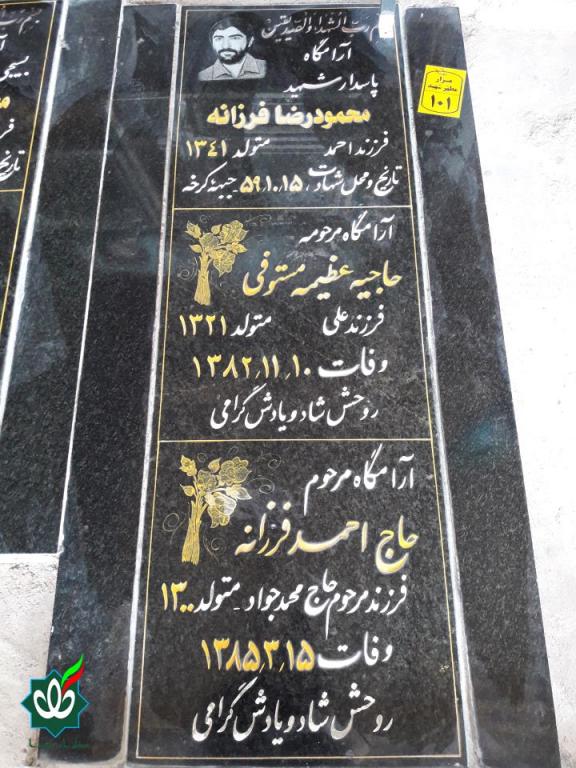 بسم رب الشهداء والصدیقین
آرامگاه
پاسدار شهید
محمودرضا فرزانه
فرزند احمد متولد ۱۳۴۱
تاریخ و محل شهادت ۵۹٫۱۰٫۱۵ جبهه کرخه
آرامگاه مرحومه
حاجیه عظیمه مستوفی
فرزند علی متولد ۱۳۲۱
وفات ۱۳۸۲٫۱۱٫۱۰
روحش شاد و یادش گرامی
آرامگاه مرحوم
حاج احمد فرزانه
فرزند مرحوم حاج محمدجواد - متولد ۱۳۰۰
وفات ۱۳۸۵٫۳٫۱۵
روحش شاد و یادش گرامی
مزار
مطهر شهید
۱۰۱
بسیجی
تاریخ